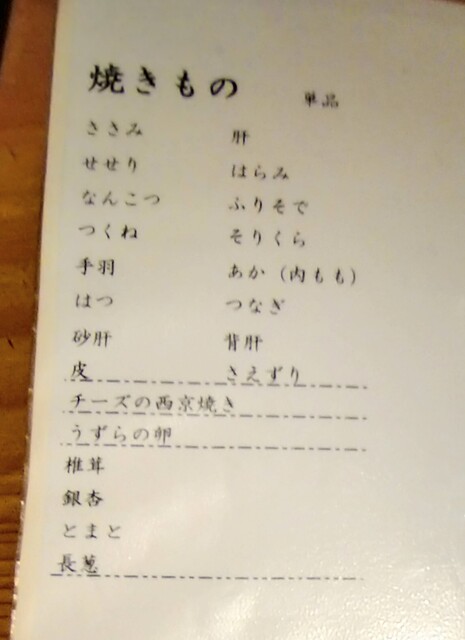 焼きもの 単品
ささみ 肝
せせり はらみ
なんこつ ふりそで
つくね そりくら
手羽 あか（内もも）
はつ つなぎ
砂肝 背肝
皮 さえずり
チーズの西京焼き
うずらの卵
椎茸
銀杏
とまと
長葱